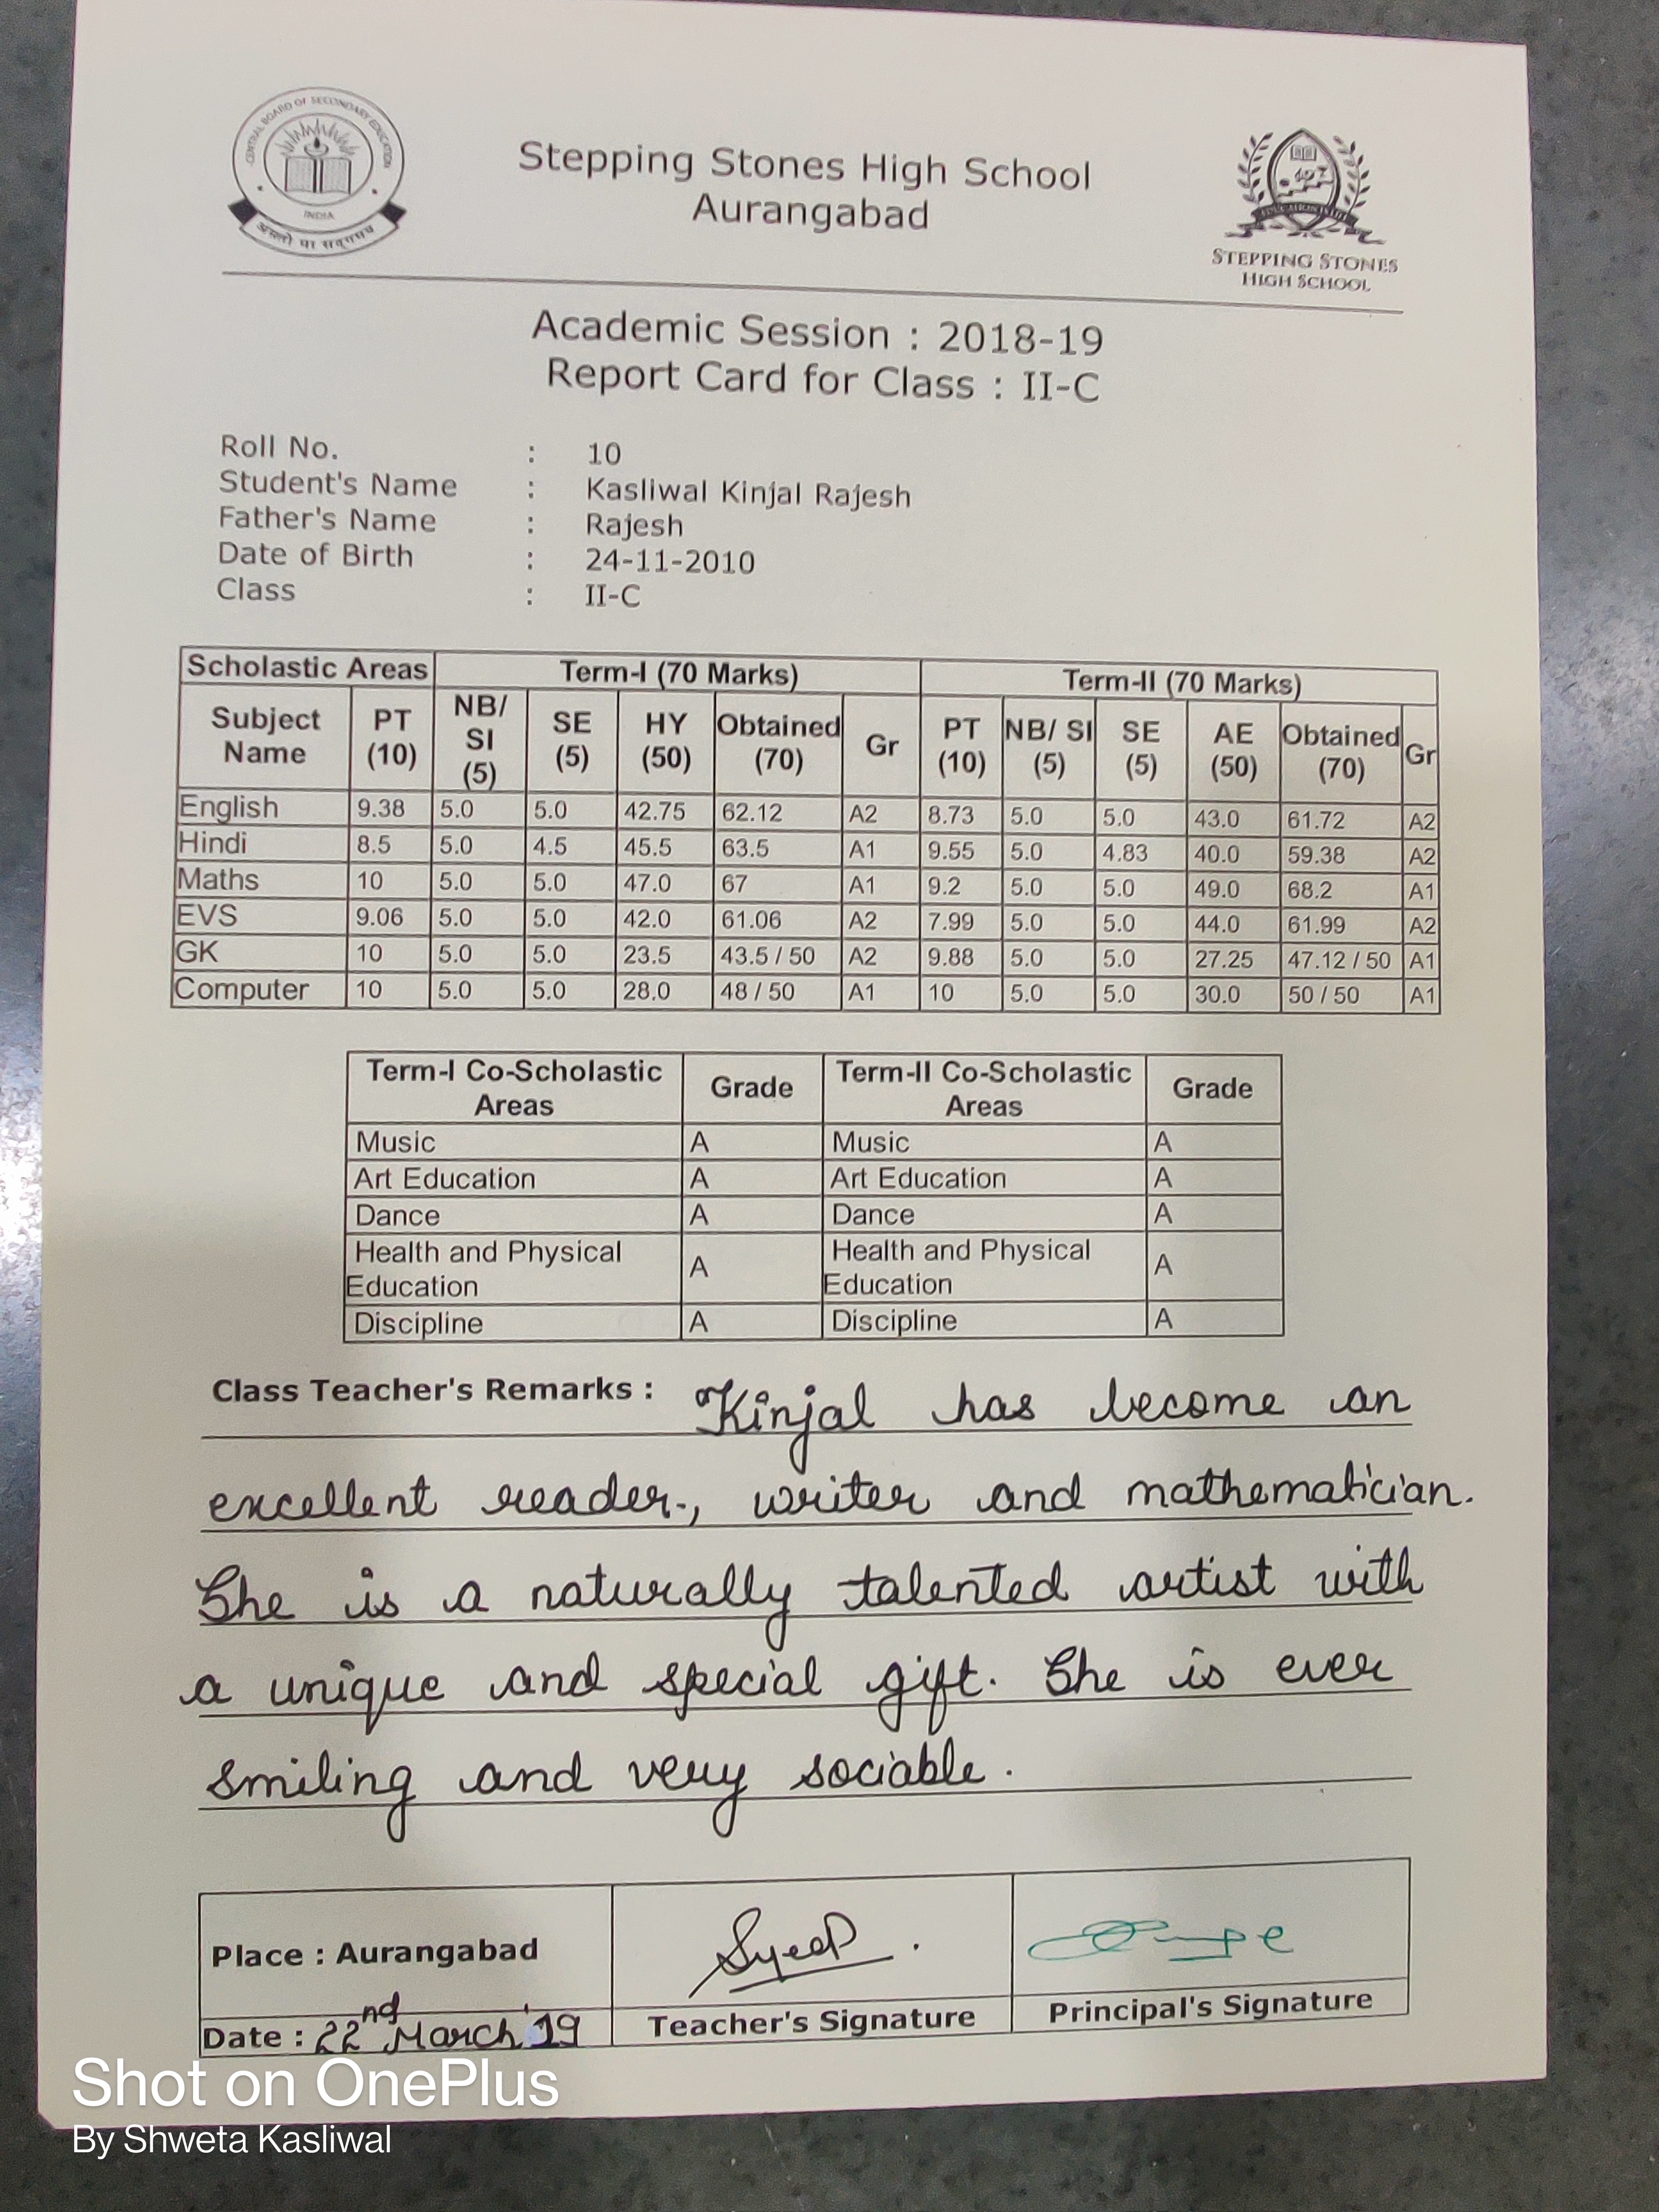 CENTRAL BOARD OF SECONDARY EDUCATION
INDIA
असतो मा सद्गमय
Stepping Stones High School
Aurangabad
STEPPING STONES
HIGH SCHOOL
Academic Session : 2018-19
Report Card for Class : II-C
Roll No. : 10
Student's Name : Kasliwal Kinjal Rajesh
Father's Name : Rajesh
Date of Birth : 24-11-2010
Class : II-C
Scholastic Areas Term-I (70 Marks) Term-II (70 Marks)
Subject Name PT (10) NB/ SI (5) SE (5) HY (50) Obtained (70) Gr PT (10) NB/ SI (5) SE (5) AE (50) Obtained (70) Gr
English 9.38 5.0 5.0 42.75 62.12 A2 8.73 5.0 5.0 43.0 61.72 A2
Hindi 8.5 5.0 4.5 45.5 63.5 A1 9.55 5.0 4.83 40.0 59.38 A2
Maths 10 5.0 5.0 47.0 67 A1 9.2 5.0 5.0 49.0 68.2 A1
EVS 9.06 5.0 5.0 42.0 61.06 A2 7.99 5.0 5.0 44.0 61.99 A2
GK 10 5.0 5.0 23.5 43.5 / 50 A2 9.88 5.0 5.0 27.25 47.12 / 50 A1
Computer 10 5.0 5.0 28.0 48 / 50 A1 10 5.0 5.0 30.0 50 / 50 A1
Term-I Co-Scholastic Areas Grade Term-II Co-Scholastic Areas Grade
Music A Music A
Art Education A Art Education A
Dance A Dance A
Health and Physical Education A Health and Physical Education A
Discipline A Discipline A
Class Teacher's Remarks : Kinjal has become an
excellent reader, writer and mathematician.
She is a naturally talented artist with
a unique and special gift. She is ever
smiling and very sociable.
Place : Aurangabad
Date : 22nd March'19 Teacher's Signature Principal's Signature
Shot on OnePlus
By Shweta Kasliwal